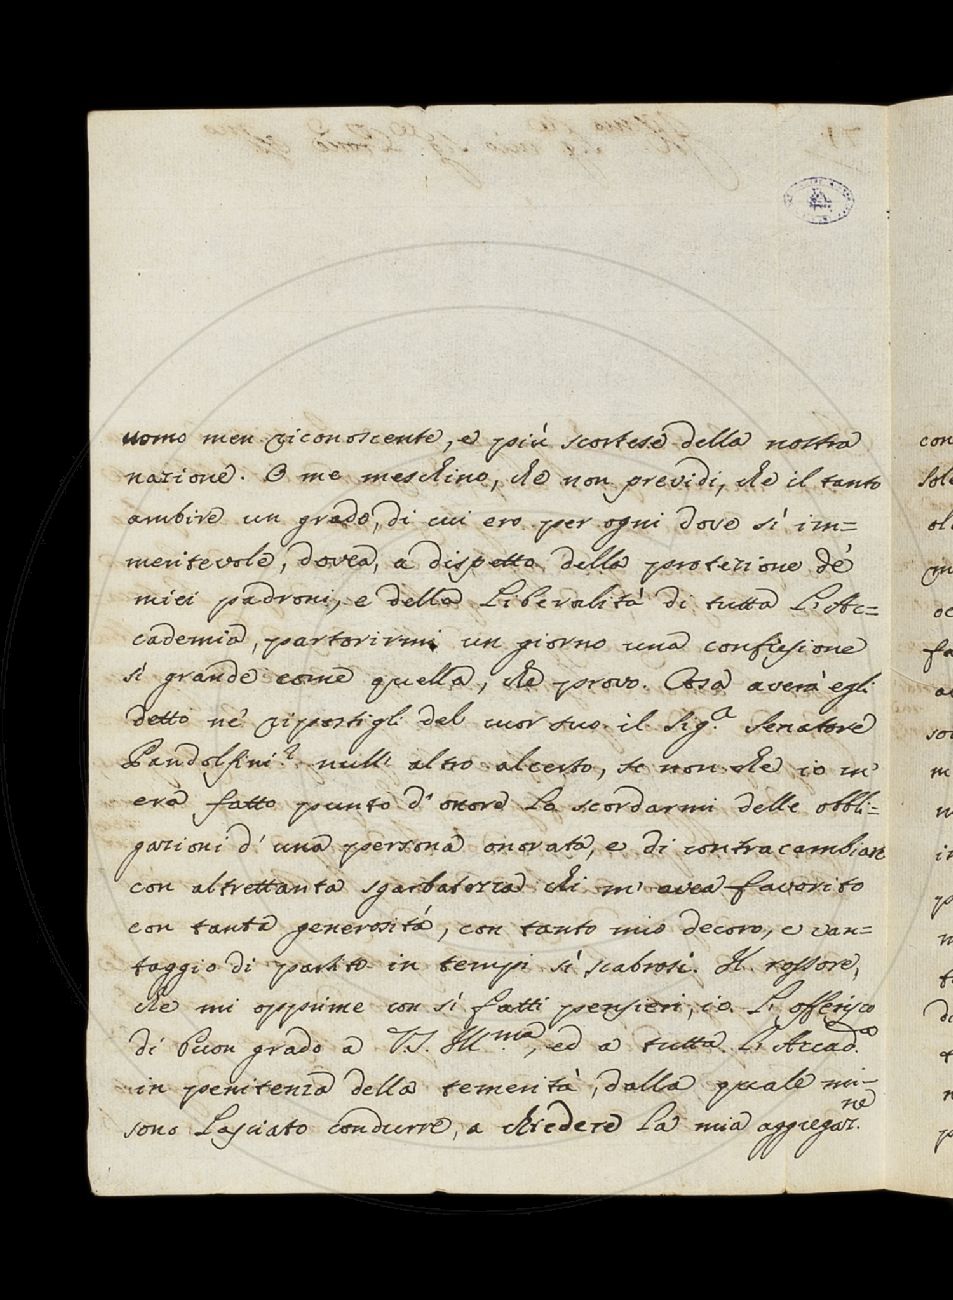 uomo men riconoscente, e più scortese della nostra
nazione. O me meschino, che non previdi, che il tanto
ambire un grado, di cui ero per ogni dove sì im=
meritevole, dovea, a dispetto della protezione de'
miei padroni, e della Liberalità di tutta L'Ac=
cademia, partorirmi un giorno una confusione
sì grande come quella, che provo. Cosa averà egli
detto ne' ripostigli del cuor suo il Sig.r Senatore
Pandolfini? null' altro alcerto, se non che io m'
era fatto punto d' onore La scordarmi delle obbli=
gazioni d' una persona onorata, e di contracambiare
con altrettanta sgarbatezza chi m' avea favorito
con tanta generosità, con tanto mio decoro, e van=
taggio di partito in tempi sì scabrosi. Il rossore,
che mi opprime con sì fatti pensieri, io Li offerisco
di buon grado a V.S. Ill.ma, ed a tutta L'Accad.a
in penitenza della temerità, dalla quale mi=
sono Lasciato condurre, a chiedere La mia aggregaz.ne